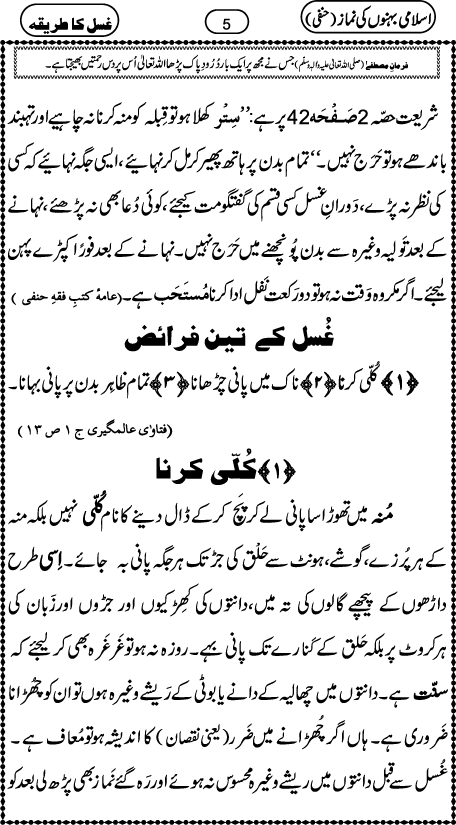 اسلامی بہنوں کی نماز (حنفی)
5
غسل کا طریقہ
فرمانِ مصطفےٰ (صلی اللہ تعالیٰ علیہ واٰلہٖ وسلّم) جس نے مجھ پر ایک بار دُرُودِ پاک پڑھا اللہ تعالیٰ اُس پر دس رحمتیں بھیجتا ہے۔
شریعت حصّہ 2 صَفْحَہ 42 پر ہے: ’’سِتْر کھلا ہو تو قبلہ کو منہ کرنا نہ چاہیے اور تہبند
باندھے ہو تو حَرَج نہیں۔‘‘ تمام بدن پر ہاتھ پھیر کر مل کر نہائیے، ایسی جگہ نہائیے کہ کسی
کی نظر نہ پڑے، دَورانِ غسل کسی قسم کی گفتگو مت کیجئے، کوئی دُعا بھی نہ پڑھئے، نہانے
کے بعد تَولیہ وغیرہ سے بدن پُونچھنے میں حَرَج نہیں۔ نہانے کے بعد فورًا کپڑے پہن
لیجئے۔ اگر مکروہ وَقت نہ ہو تو دو رَکعت نَفل ادا کرنا مُستَحَب ہے۔ (عامۂ کتبِ فقہِ حنفی)
غُسل کے تین فرائض
﴿۱﴾ کُلّی کرنا ﴿۲﴾ ناک میں پانی چڑھانا ﴿۳﴾ تمام ظاہِر بدن پر پانی بہانا۔
(فتاوٰی عالمگیری ج ۱ ص ۱۳)
﴿۱﴾ کُلّی کرنا
مُنہ میں تھوڑا سا پانی لے کر پَچ کر کے ڈال دینے کا نام کُلّی نہیں بلکہ منہ
کے ہر پُرزے، گوشے، ہونٹ سے حَلْق کی جڑ تک ہر جگہ پانی بہ جائے۔ اِسی طرح
داڑھوں کے پیچھے گالوں کی تہ میں، دانتوں کی کِھڑکیوں اور جڑوں اور زَبان کی
ہر کروٹ پر بلکہ حَلق کے کَنارے تک پانی بہے۔ روزہ نہ ہو تو غَرغَرہ بھی کر لیجئے کہ
سنّت ہے۔ دانتوں میں چھالیہ کے دانے یا بوٹی کے رَیشے وغیرہ ہوں تو ان کو چُھڑانا
ضَروری ہے۔ ہاں اگر چُھڑانے میں ضَرر (یعنی نقصان) کا اندیشہ ہو تو مُعاف ہے۔
غُسل سے قبل دانتوں میں ریشے وغیرہ محسوس نہ ہوئے اور رَہ گئے نَماز بھی پڑھ لی بعد کو